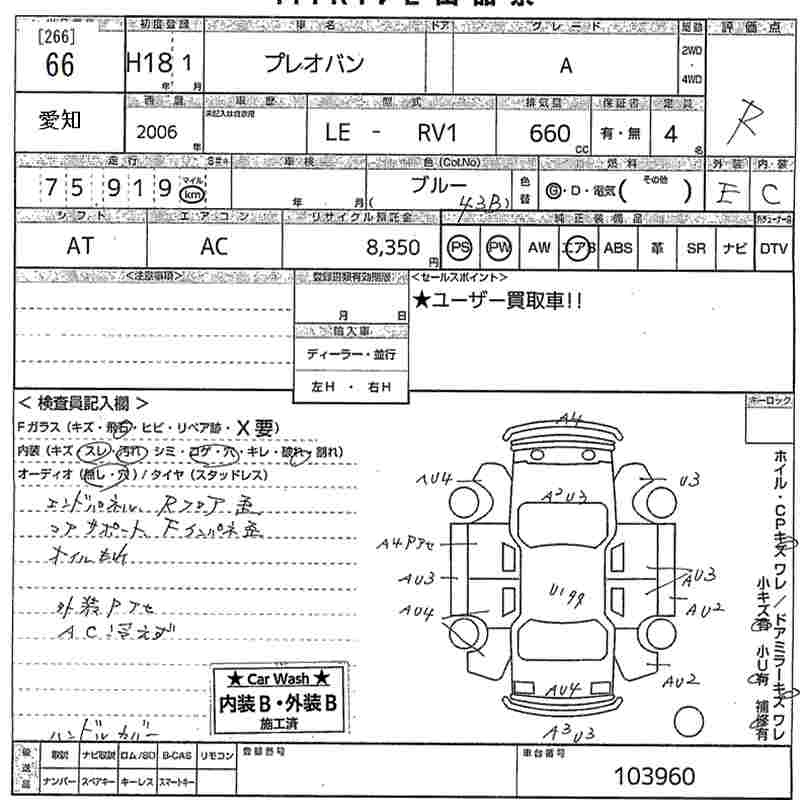 [266]
66
初度登録
車名
ドア
グレード
駆動
評価点
H18年 1月
プレオバン
A
2WD
・
4WD
愛知
西暦
車歴
型式
排気量
保証書
定員
R
2006年
未記入は自家用
LE - RV1
660cc
有・無
4名
走行
車検
色(Col.No)
燃料
外装
内装
75919
マイル
km
年 月
ブルー
(43B)
色替
G・D・電気( その他 )
E
C
シフト
エアコン
リサイクル預託金
純正装備品
AT
AC
8,350円
PS
PW
AW
エアB
ABS
革
SR
ナビ
DTV
<注意事項>
登録書類有効期限
月 日
<セールスポイント>
★ユーザー買取車!!
輸入車
ディーラー・並行
左H ・ 右H
< 検査員記入欄 >
キーロック
Fガラス(キズ・飛石・ヒビ・リペア跡・X要)
内装(キズ・スレ・汚れ・シミ・コゲ・穴・キレ・破れ・割れ)
オーディオ(無し・穴)/タイヤ(スタッドレス)
エンドパネル、Rフロア歪
コアサポート、Fインパネ歪
オイルもれ
外装Pアセ
AC冷えず
ハンドルカバー
★ Car Wash ★
内装B・外装B
施工済
A4
AU4
U3
A2U3
A4Pアセ
AU3
AU3
U1
AU4
AU2
AU4
AU2
A3U3
ホイル・CPキズ ワレ/ドアミラーキズ ワレ
小キズ有 小U有 補修有
後送品
取説
ナビ取説
ロム/SD
B-CAS
リモコン
ナンバー
スペアキー
キーレス
スマートキー
登録番号
車台番号
103960